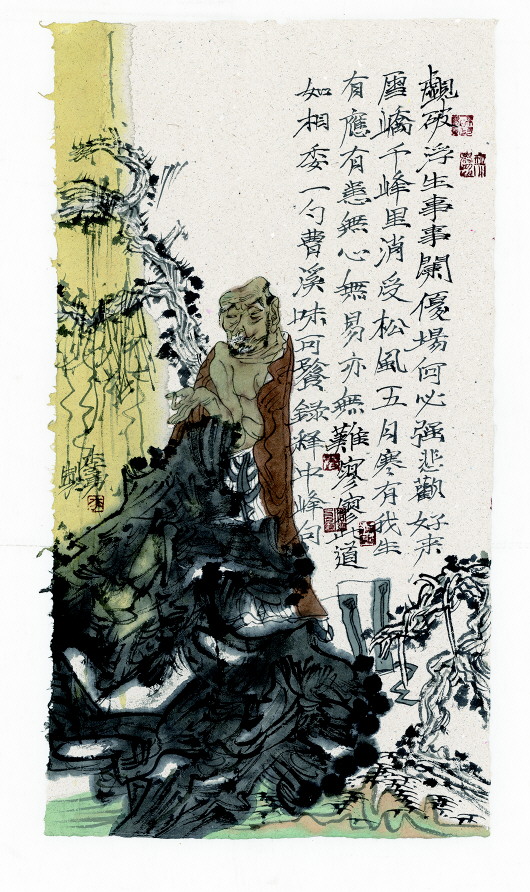 覷破浮生事事闌優場何必强悲歡好來
層嶠千峰里消受松風五月寒有我生
有應有患無心無易亦無難寥寥此道
如相委一勺曹溪味可餐錄釋中峰句